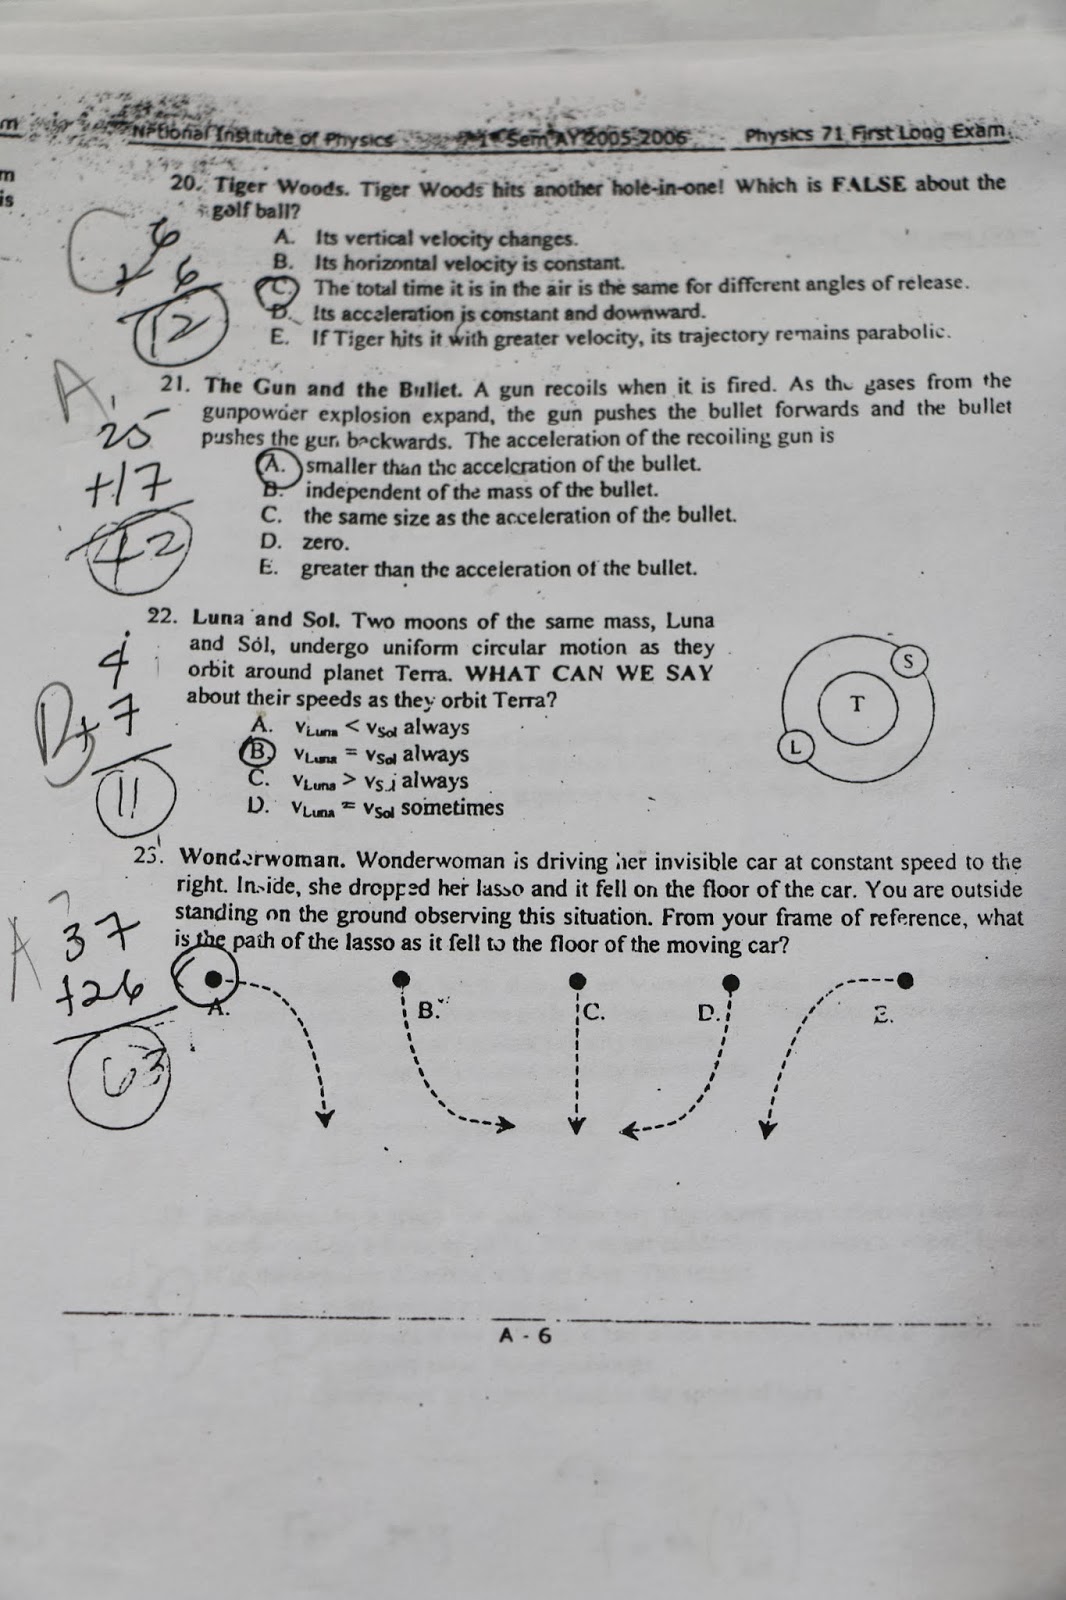 m
National Institute of Physics 1st Sem AY 2005-2006 Physics 71 First Long Exam
m
is
20. Tiger Woods. Tiger Woods hits another hole-in-one! Which is FALSE about the
golf ball?
A. Its vertical velocity changes.
B. Its horizontal velocity is constant.
C. The total time it is in the air is the same for different angles of release.
D. Its acceleration is constant and downward.
E. If Tiger hits it with greater velocity, its trajectory remains parabolic.
C
6
+ 6
12
21. The Gun and the Bullet. A gun recoils when it is fired. As the gases from the
gunpowder explosion expand, the gun pushes the bullet forwards and the bullet
pushes the gun backwards. The acceleration of the recoiling gun is
A. smaller than the acceleration of the bullet.
B. independent of the mass of the bullet.
C. the same size as the acceleration of the bullet.
D. zero.
E. greater than the acceleration of the bullet.
A
1
25
+17
42
22. Luna and Sol. Two moons of the same mass, Luna
and Sol, undergo uniform circular motion as they
orbit around planet Terra. WHAT CAN WE SAY
about their speeds as they orbit Terra?
A. vLuna < vSol always
B. vLuna = vSol always
C. vLuna > vSol always
D. vLuna = vSol sometimes
S
T
L
B
4
+7
11
23. Wonderwoman. Wonderwoman is driving her invisible car at constant speed to the
right. Inside, she dropped her lasso and it fell on the floor of the car. You are outside
standing on the ground observing this situation. From your frame of reference, what
is the path of the lasso as it fell to the floor of the moving car?
A. B. C. D. E.
A
37
+26
63
A - 6